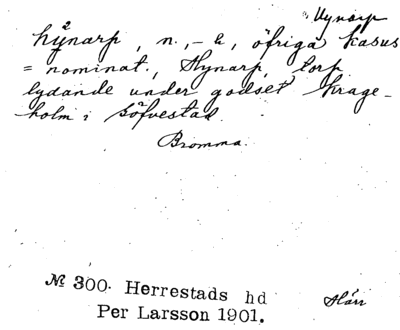 Hynarp
hynarp, n., - a, öfriga kasus
= nominat., Hynarp, torp
lydande under godset Krage-
holm i Söfvestad.
Bromma.
№ 300. Herrestads hd
Per Larsson 1901.